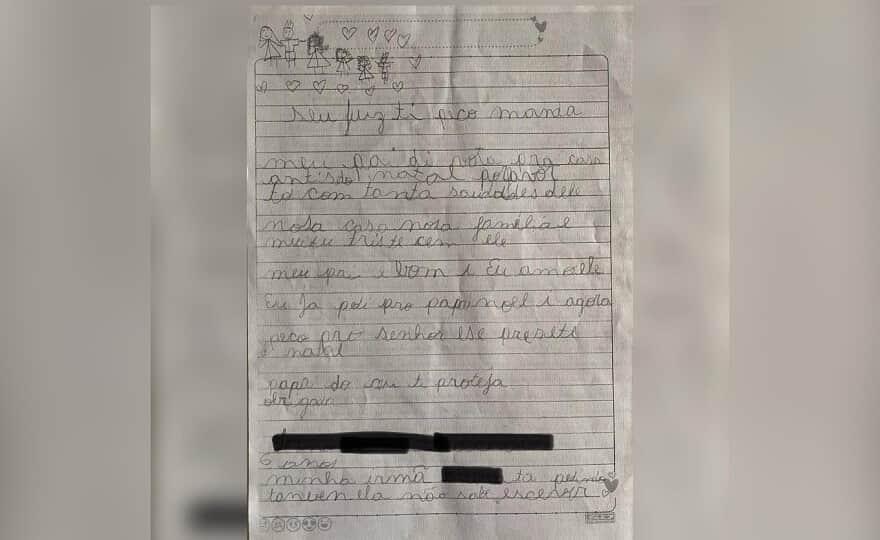 seu juiz ti peco manda
meu pai di vota pra casa
antis do natal porfavor
to com tanta saudades dele
nosa casa nosa familia e
muitu triste cem ele
meu pai e bom i Eu amo ele
Eu Ja pedi pro papai noel i agora
peco pro senhor ese preseti
natal
papa do ceu ti proteja
obrigado
6 anos
minha irmã ta pedindo
tanben ela não sabe escever